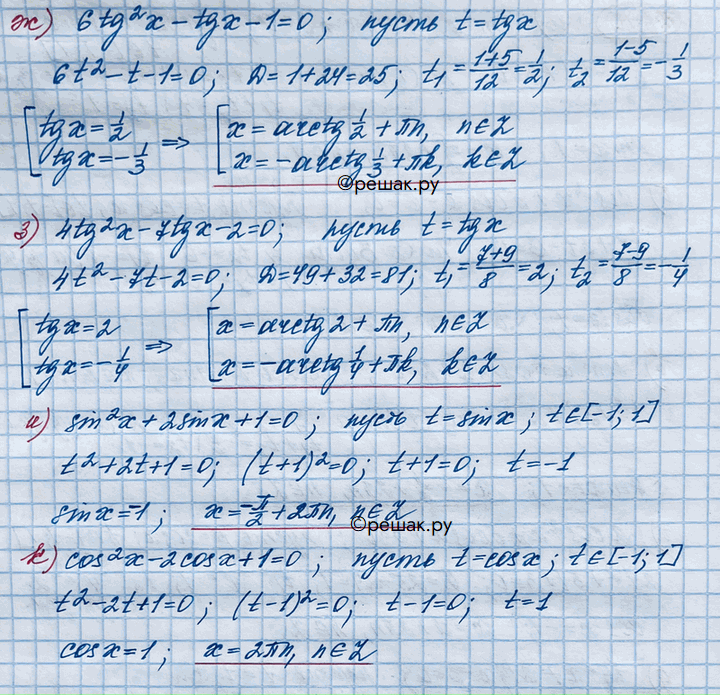 ж) 6tg²x − tgx − 1 = 0; пусть t = tgx
6t² − t − 1 = 0; D = 1 + 24 = 25; t₁ = (1+5)/12 = 1/2; t₂ = (1−5)/12 = −1/3
[ tgx = 1/2 ⇒ [ x = arctg 1/2 + πn, n ∈ Z
tgx = −1/3 x = −arctg 1/3 + πk, k ∈ Z
©решак.ру
з) 4tg²x − 7tgx − 2 = 0; пусть t = tgx
4t² − 7t − 2 = 0; D = 49 + 32 = 81; t₁ = (7+9)/8 = 2; t₂ = (7−9)/8 = −1/4
[ tgx = 2 ⇒ [ x = arctg 2 + πn, n ∈ Z
tgx = −1/4 x = −arctg 1/4 + πk, k ∈ Z
и) sin²x + 2sinx + 1 = 0; пусть t = sinx; t ∈ [−1; 1]
t² + 2t + 1 = 0; (t+1)² = 0; t + 1 = 0; t = −1
sinx = −1; x = −π/2 + 2πn, n ∈ Z
©решак.ру
к) cos²x − 2cosx + 1 = 0; пусть t = cosx; t ∈ [−1; 1]
t² − 2t + 1 = 0; (t−1)² = 0; t − 1 = 0; t = 1
cosx = 1; x = 2πn, n ∈ Z